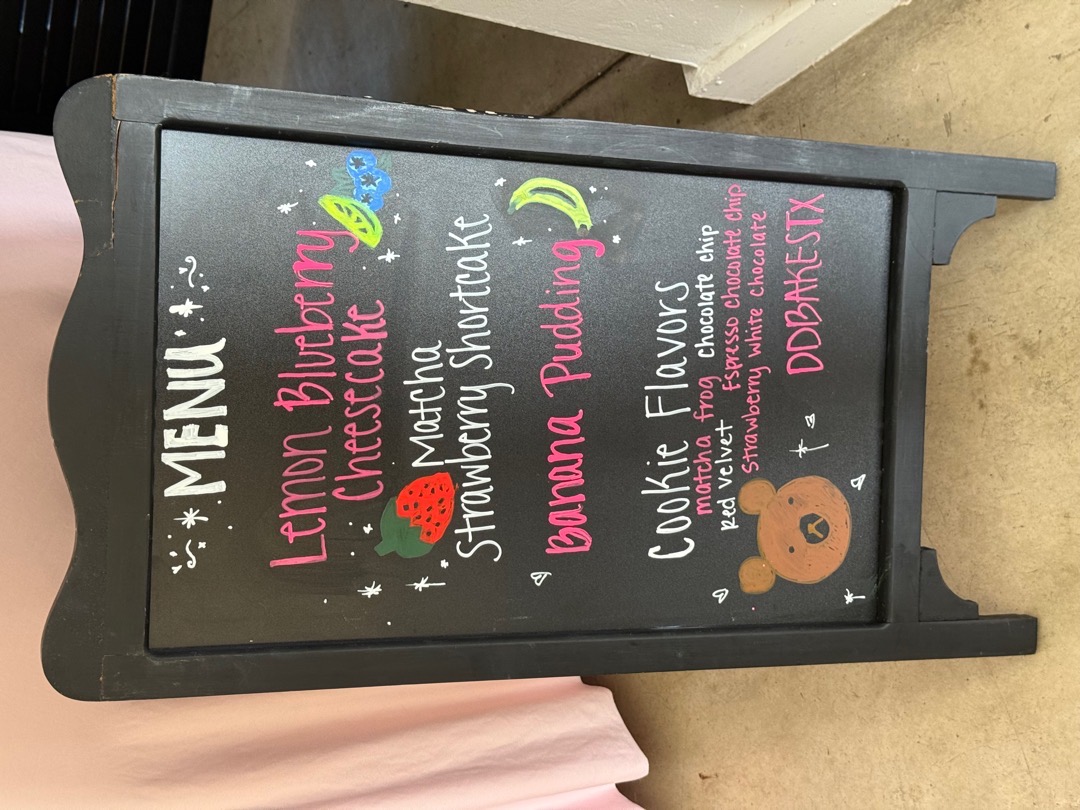 MENU
Lemon Blueberry
Cheesecake
Matcha
Strawberry Shortcake
Banana Pudding
Cookie Flavors
matcha frog chocolate chip
Red Velvet Espresso chocolate chip
Strawberry white chocolate
DDBAKESTX